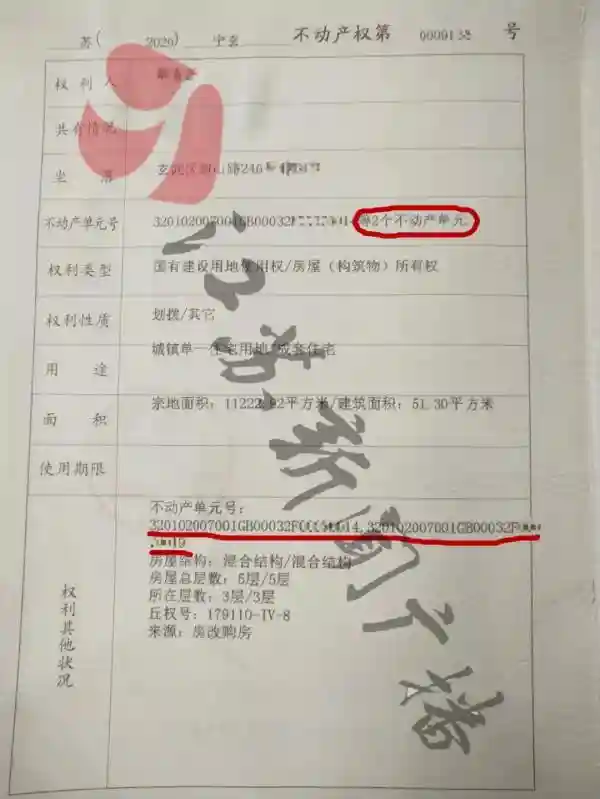 苏( 2020) 宁玄 不动产权第 0009138 号
权利人
共有情况
坐落 玄武区 山路246
不动产单元号 320102007001GB00032F 等2个不动产单元
权利类型 国有建设用地使用权/房屋（构筑物）所有权
权利性质 划拨/其它
用途 城镇单一住宅用地/成套住宅
面积 宗地面积：11222.92平方米/建筑面积：51.30平方米
使用期限
权利其他状况
不动产单元号：
320102007001GB00032F 14,320102007001GB00032F
19
房屋结构：混合结构/混合结构
房屋总层数：5层/5层
所在层数：3层/3层
丘权号：179110-IV-8
来源：房改购房
江苏新闻广播